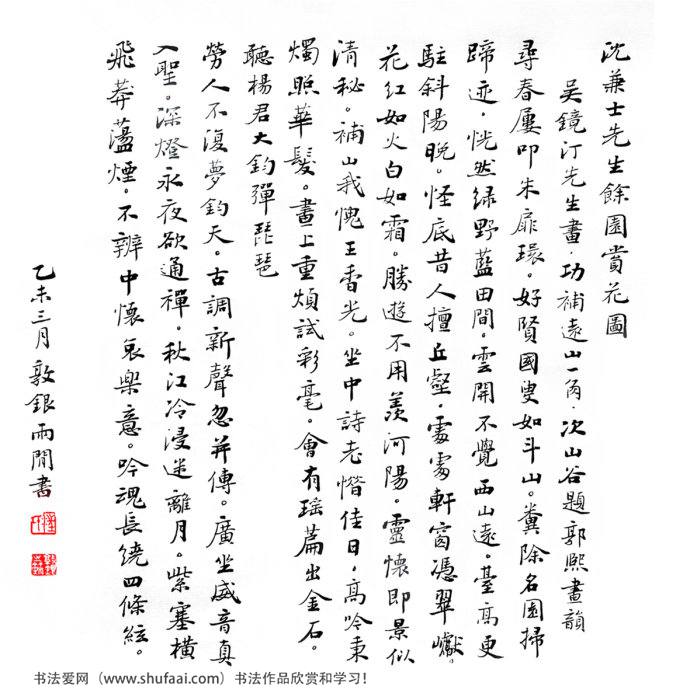 沈兼士先生餘園賞花圖
吳鏡汀先生畫·功補遠山一角·次山谷題郭熙畫韻
尋春屢叩朱扉環。好賢國叟如斗山。糞除名園掃
蹄迹·恍然绿野藍田間·雲開不覺西山遠。臺高更
駐斜陽晚。怪底昔人擅丘壑·處處軒窗憑翠巘。
花紅如火白如霜。勝遊不用羨河陽。靈懷即景似
清秘。補山我愧王香光。坐中詩老惜佳日·高吟秉
燭照華髮。畫上重煩試彩毫。會有瑶篇出金石。
聽楊君大鈞彈琵琶
勞人不復夢鈞天。古調新聲忽并傳。廣坐威音真
入聖。深燈永夜欲通禪·秋江冷浸迷離月。紫塞橫
飛莽蕩煙。不辨中懷哀樂意。吟魂長繞四條絃。
乙未三月敦銀雨閒書
书法爱网（www.shufaai.com）书法作品欣赏和学习！